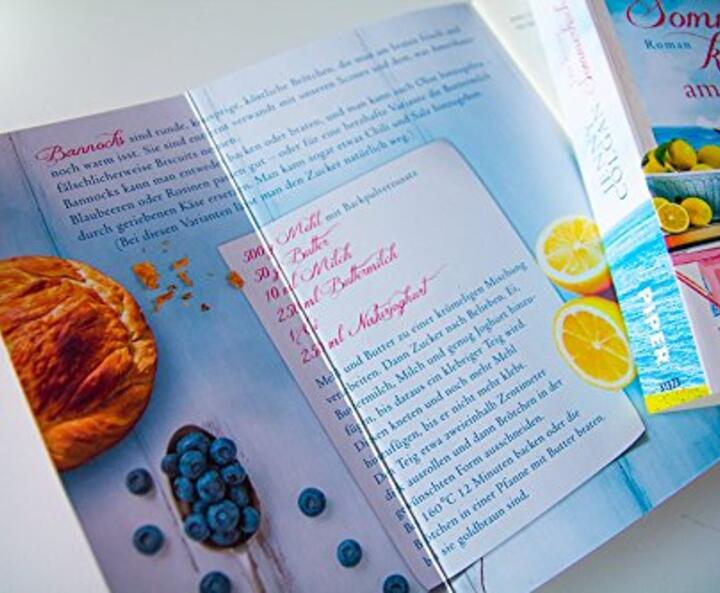 Bannocks sind runde, knusprige, köstliche Brötchen, die man am besten frisch und
noch warm isst. Sie sind entfernt verwandt mit unseren Scones und dem, was
fälschlicherweise Biscuits
Bannocks kann man entweder backen oder braten, und man kann auch Obst hinzugeben
Blaubeeren oder Rosinen passen gut – oder für eine herzhafte Variante die Buttermilch
durch geriebenen Käse ersetzen. Man kann sogar etwas Chili und Salz hinzugeben.
(Bei diesen Varianten lässt man den Zucker natürlich weg.)
500 g Mehl mit Backpulverzusatz
50 g Butter
10 ml Milch
250 ml Buttermilch
1 Ei
250 ml Naturjoghurt
Mehl und Butter zu einer krümeligen Mischung
verarbeiten. Dann Zucker nach Belieben, Ei,
Buttermilch, Milch und genug Joghurt hinzu-
fügen, bis daraus ein klebriger Teig wird.
Diesen kneten und noch mehr Mehl
hinzufügen, bis er nicht mehr klebt.
Den Teig etwa zweieinhalb Zentimeter
dick ausrollen und dann Brötchen in der
gewünschten Form ausschneiden.
Bei 160 °C 12 Minuten backen oder die
Brötchen in einer Pfanne mit Butter braten,
bis sie goldbraun sind.
JENNY
COLGAN
PIPER
31373
Roman
am